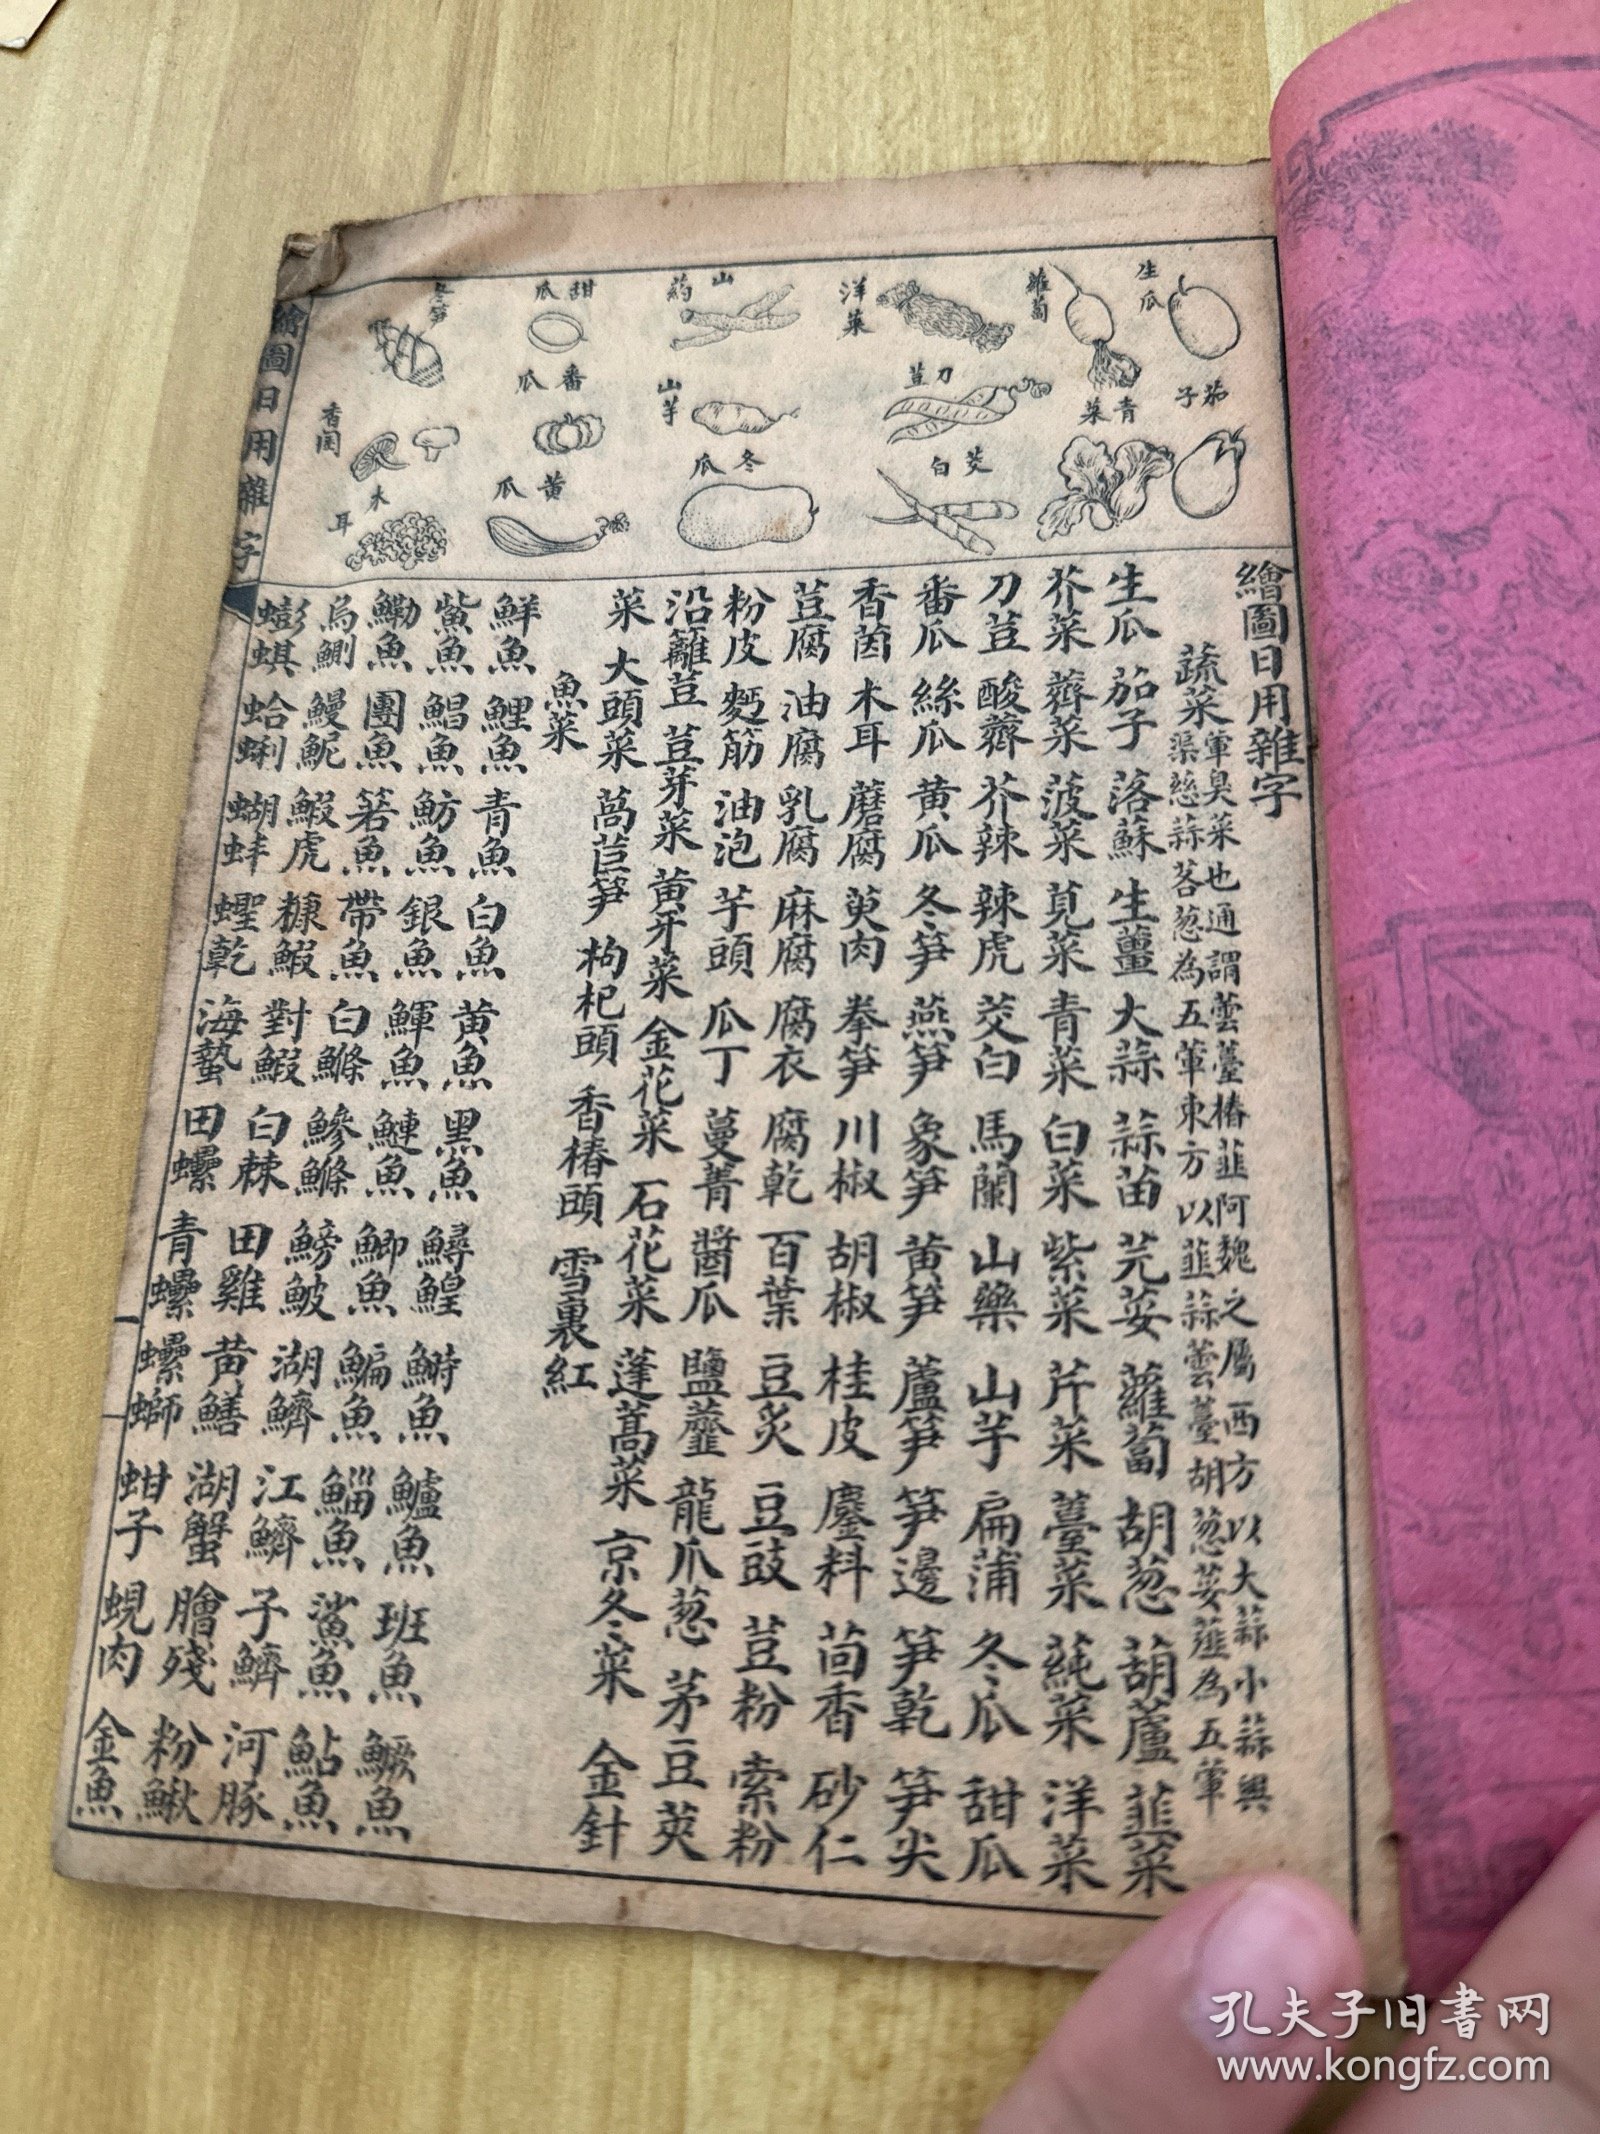 繪圖日用雜字
生瓜
茄子
蘿蔔
青菜
洋菜
刀荳
茭白
山药
山芋
冬瓜
甜瓜
番瓜
黄瓜
冬笋
香茵
木耳
繪圖日用雜字
蔬菜
葷臭菜也通謂蕓薹椿韮阿魏之屬西方以大蒜小蒜與
渠慈蒜茖葱為五葷東方以韮蒜蕓薹胡葱荽薤為五葷
生瓜 茄子 落蘇 生薑 大蒜 蒜苗 芫荽 蘿蔔 胡葱 葫蘆 韮菜
芥菜 薺菜 菠菜 莧菜 青菜 白菜 紫菜 芹菜 薹菜 蒓菜 洋菜
刀荳 酸虀 芥辣 辣虎 茭白 馬蘭 山藥 山芋 扁蒲 冬瓜 甜瓜
番瓜 絲瓜 黄瓜 冬笋 燕笋 象笋 黄笋 蘆笋 笋邊 笋乾 笋尖
香茵 木耳 蘑腐 萸肉 拳笋 川椒 胡椒 桂皮 鏖料 茴香 砂仁
荳腐 油腐 乳腐 麻腐 腐衣 腐乾 百葉 豆炙 豆豉 荳粉 索粉
粉皮 麪筋 油泡 芋頭 瓜丁 蔓菁 醬瓜 鹽虀 龍爪葱 茅豆莢
沿籬荳 荳芽菜 黄芽菜 金花菜 石花菜 蓬蒿菜 京冬菜 金針
菜 大頭菜 萵苣笋 枸杞頭 香椿頭 雪裏紅
魚菜
鮮魚 鯉魚 青魚 白魚 黄魚 黑魚 鱘鰉 鰣魚 鱸魚 班魚 鱖魚
鮆魚 鯧魚 魴魚 銀魚 鯶魚 鰱魚 鯽魚 鯿魚 鯔魚 鯊魚 鮎魚
鰳魚 團魚 箬魚 帶魚 白鰷 鰺鰷 鰟鮍 湖鱭 江鱭 子鱭 河豚
烏鰂 鰻鮸 鰕虎 糠鰕 對鰕 白棘 田雞 黄鱔 湖蟹 膾殘 粉鰍
蟛蜞 蛤蜊 蝴蚌 蟶乾 海蜇 田螺 青螺 螺螄 蚶子 蜆肉 金魚
孔夫子旧书网
www.kongfz.com